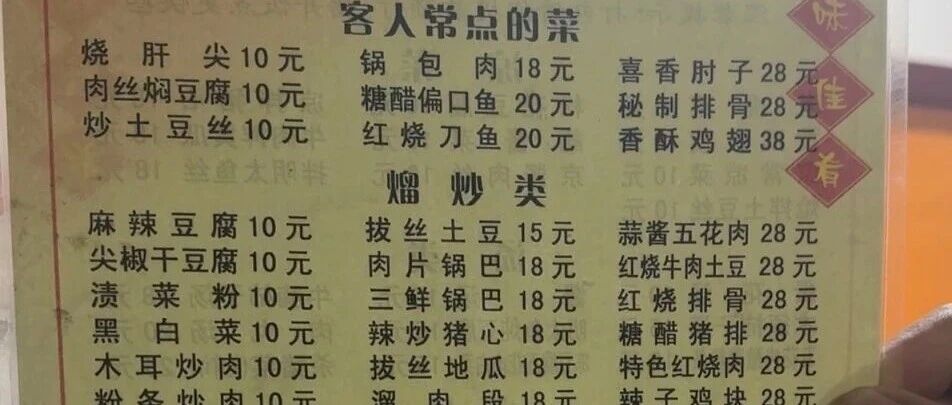 客人常点的菜
烧肝尖10元 锅包肉18元 喜香肘子28元
肉丝焖豆腐10元 糖醋偏口鱼20元 秘制排骨28元
炒土豆丝10元 红烧刀鱼20元 香酥鸡翅38元
味佳肴
熘炒类
麻辣豆腐10元 拔丝土豆15元 蒜酱五花肉28元
尖椒干豆腐10元 肉片锅巴18元 红烧牛肉土豆28元
渍菜粉10元 三鲜锅巴18元 红烧排骨28元
黑白菜10元 辣炒猪心18元 糖醋猪排28元
木耳炒肉10元 拔丝地瓜18元 特色红烧肉28元
粉条炒肉10元 溜肉段18元 辣子鸡块28元